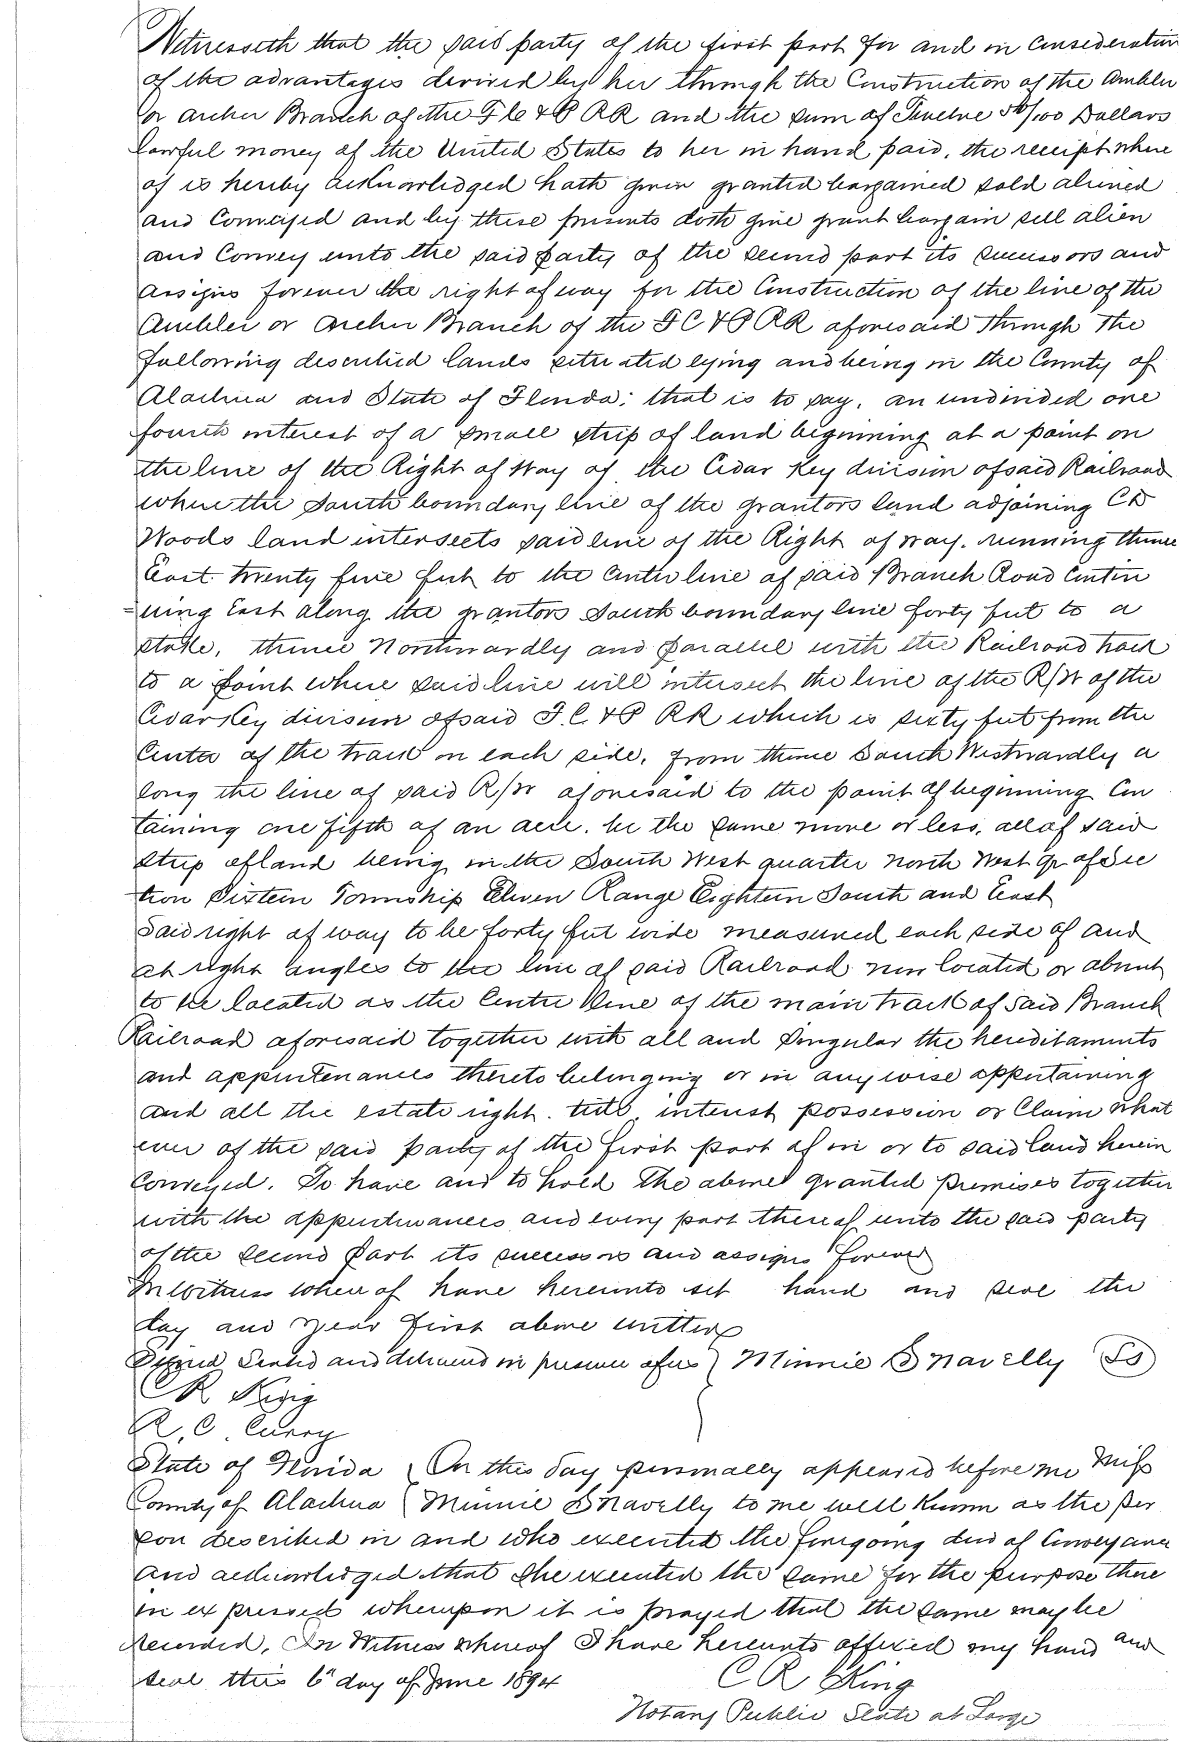 Witnesseth that the said party of the first part for and in consideration
of the advantages derived by her through the Construction of the Ambler
or Archer Branch of the F C & P RR and the sum of Twelve 50/100 Dollars
lawful money of the United States to her in hand paid, the receipt where
of is hereby acknowledged hath given granted bargained sold aliened
and Conveyed and by these presents doth give grant bargain sell alien
and Convey unto the said party of the second part its successors and
assigns forever the right of way for the Construction of the line of the
Ambler or Archer Branch of the F C & P RR aforesaid through the
following described lands situated lying and being in the County of
Alachua and State of Florida; that is to say, an undivided one
fourth interest of a small strip of land beginning at a point on
the line of the Right of Way of the Cedar Key division of said Railroad
where the South boundary line of the grantors land adjoining C D
Woods land intersects said line of the Right of way. running thence
East. twenty five feet to the Center line of said Branch Road Contin
=uing East along the grantors South boundary line forty feet to a
stake, thence Northwardly and parallel with the Railroad track
to a point where said line will intersect the line of the R/W of the
Cedar Key division of said F. C. & P RR which is sixty feet from the
Center of the track on each side, from thence South Westwardly a
long the line of said R/W aforesaid to the point of beginning Con
taining one fifth of an acre. be the same more or less, all of said
strip of land being in the South West quarter North West qr of Sec
tion Sixteen Township Eleven Range Eighteen South and East
Said right of way to be forty feet wide measured each side of and
at right angles to the line of said Railroad now located or about
to be located as the Centre line of the main track of Said Branch
Railroad aforesaid together with all and Singular the hereditaments
and appurtenances thereto belonging or in any wise appertaining
and all the estate right. title, interest possession or Claim what
ever of the said party of the first part of in or to said land herein
Conveyed. To have and to hold the above granted premises together
with the appurtenances and every part thereof unto the said party
of the second part its successors and assigns forever
In Witness whereof have hereunto set hand and seal the
day and year first above written
Signed Sealed and delivered in presence of us } Minnie Snavelly (LS)
C R King
R. C. Curry
State of Florida } On this day personally appeared before me Miss
County of Alachua } Minnie Snavelly to me well Known as the per
son described in and who executed the foregoing deed of Conveyance
and acknowledged that she executed the same for the purpose there
in expressed whereupon it is prayed that the same may be
recorded, In Witness whereof I have hereunto affixed my hand and
seal this 6" day of June 1894
C R King
Notary Public State at Large